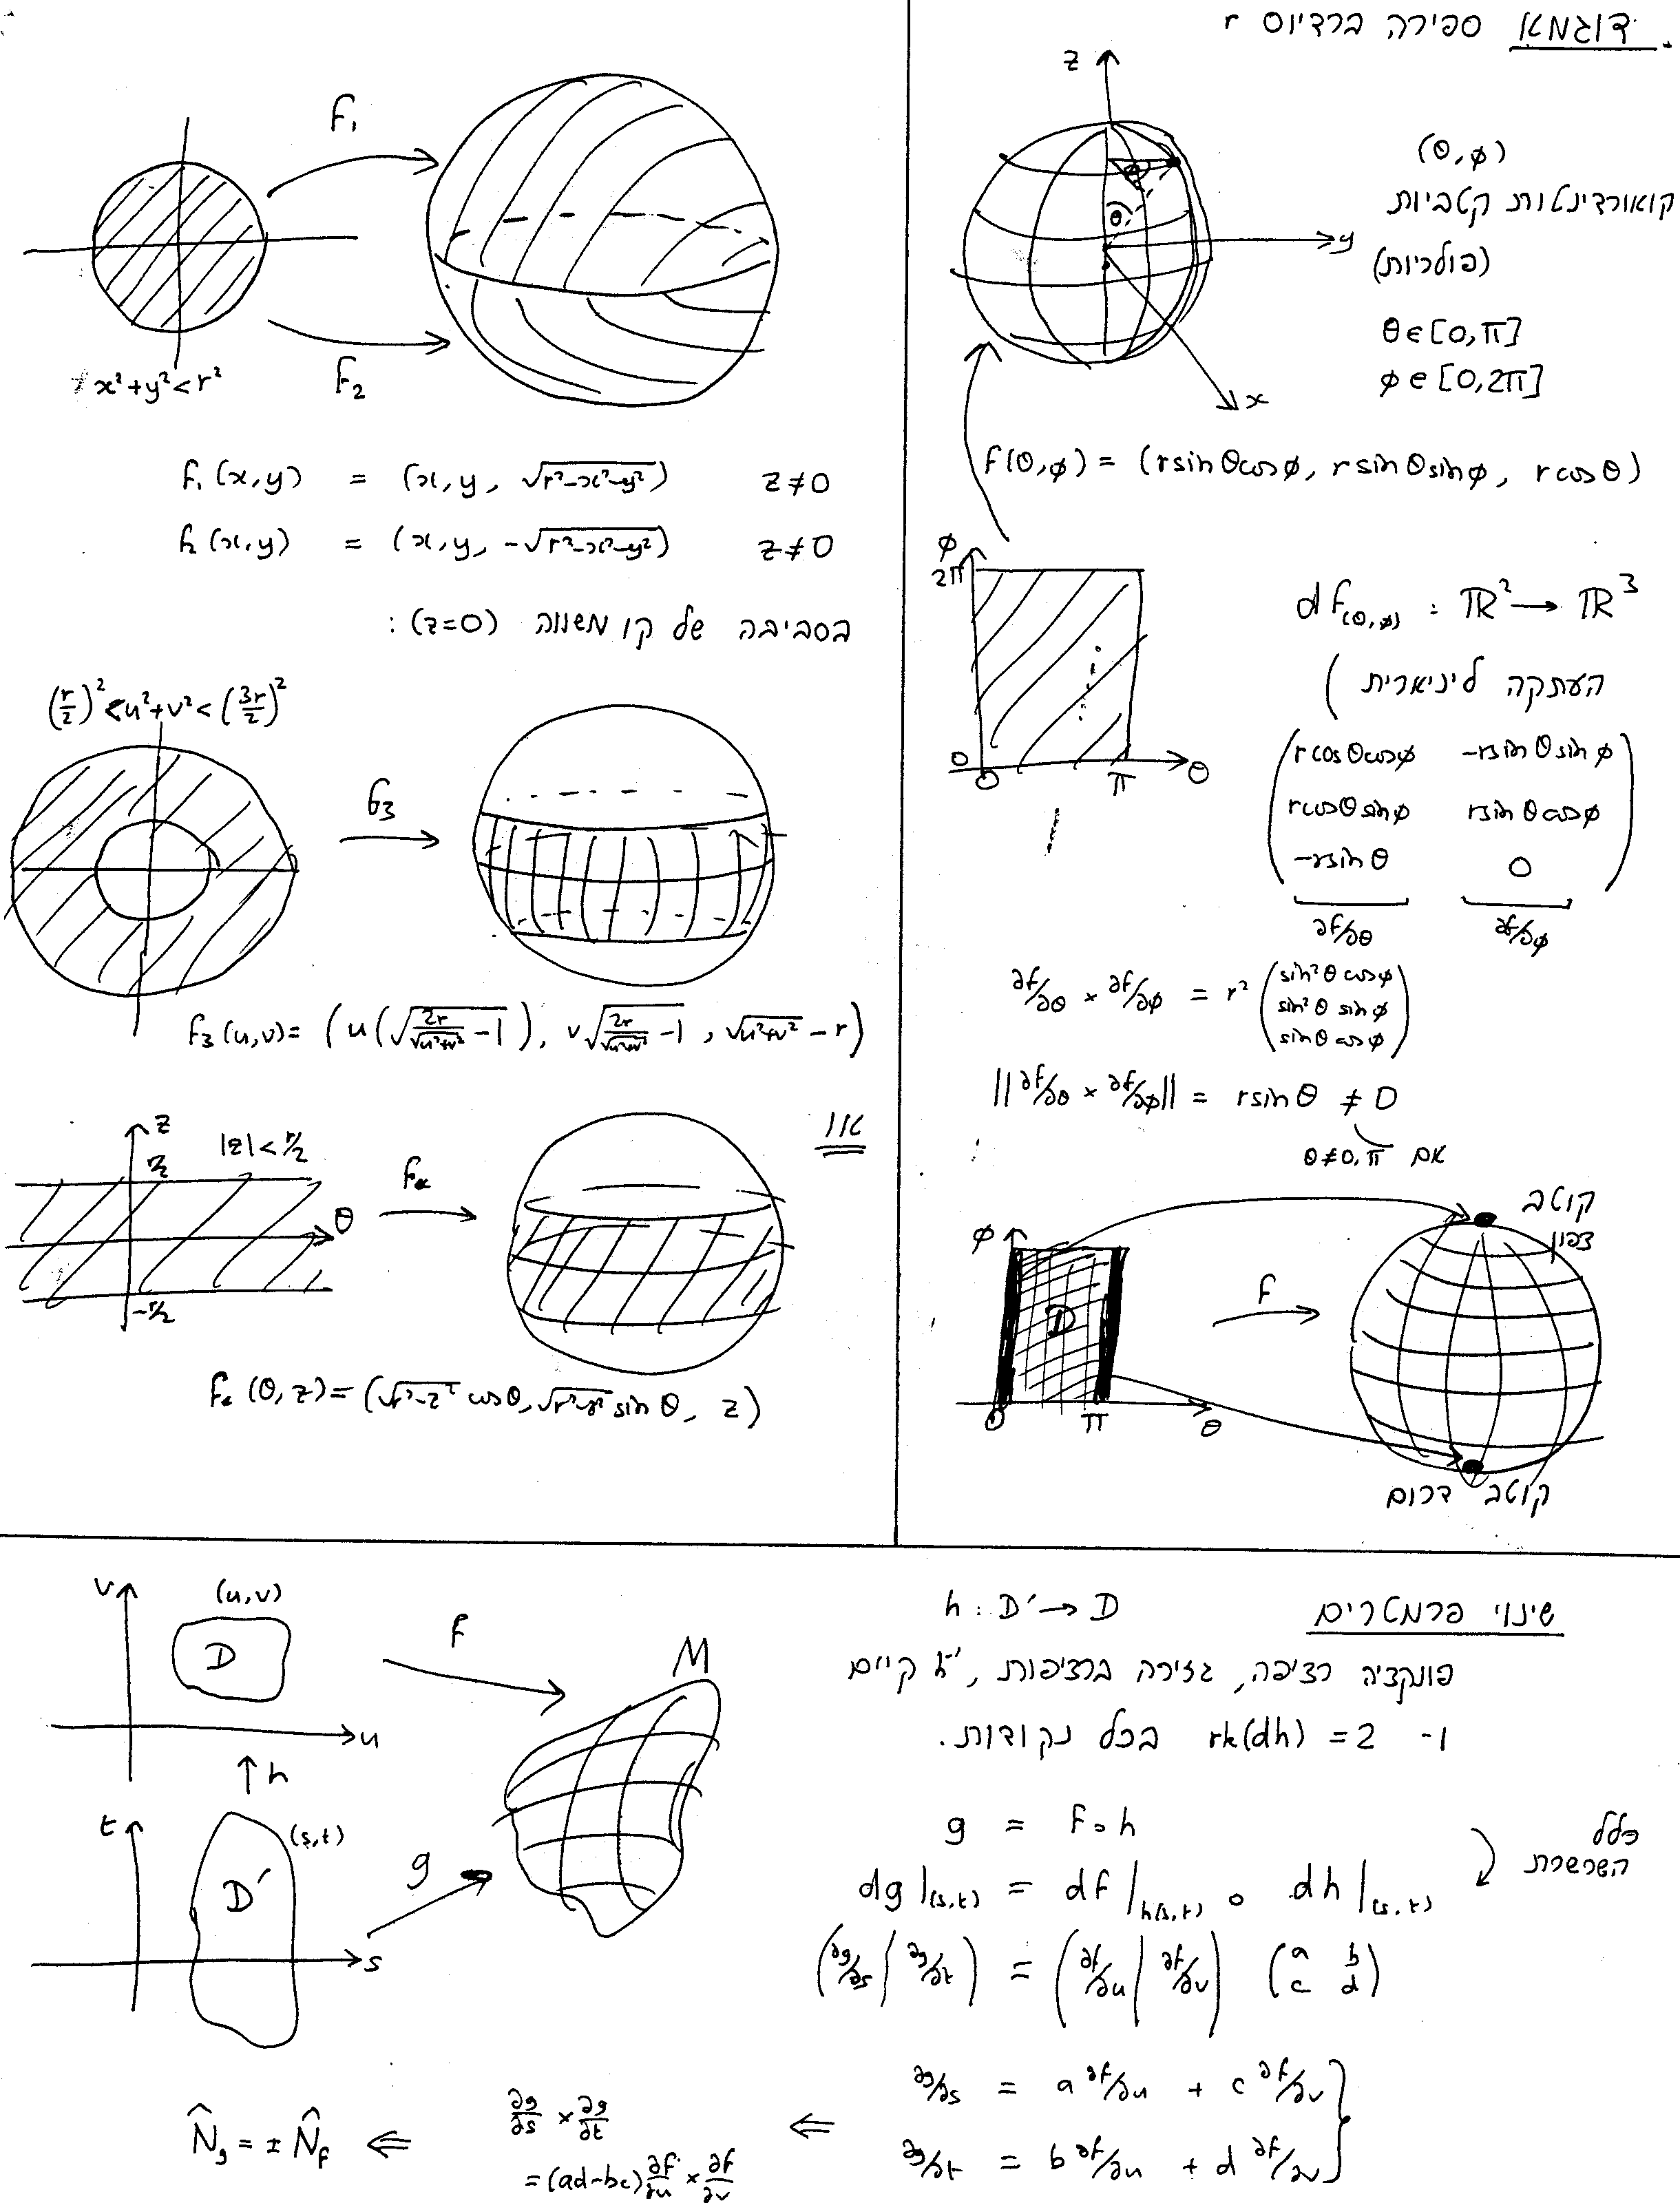 דוגמא ספירה ברדיוס r
z
(θ,φ)
קואורדינטות קטביות
(פולריות)
y
θ∈[0,π]
φ∈[0,2π]
x
θ
φ
f(θ,φ) = (rsinθcosφ, rsinθsinφ, rcosθ)
φ
2π
0
0 π θ
df(θ,φ) : ℝ² → ℝ³
העתקה ליניארית
(rcosθcosφ -rsinθsinφ
rcosθsinφ rsinθcosφ
-rsinθ 0)
∂f/∂θ ∂f/∂φ
∂f/∂θ × ∂f/∂φ = r² (sin²θcosφ
sin²θ sinφ
sinθcosφ)
||∂f/∂θ × ∂f/∂φ|| = rsinθ ≠ 0
אם θ≠0,π
קוטב
צפון
φ
D
f
0 π θ
קוטב דרום
f₁
x²+y²<r²
f₂
f₁(x,y) = (x,y, √(r²-x²-y²)) z≠0
f₂(x,y) = (x,y, -√(r²-x²-y²)) z≠0
בסביבה של קו משווה (z=0) :
(r/2)² < u²+v² < (3r/2)²
f₃
f₃(u,v) = (u(√(2r/√(u²+v²) -1)), v√(2r/√(u²+v²) -1), √(u²+v²) - r)
או
z
r/2
|z|<r/2
θ
-r/2
f₄
f₄(θ,z) = (√(r²-z²) cosθ, √(r²-z²) sinθ, z)
שינוי פרמטרים
h : D' → D
פונקציה רציפה, גזירה ברציפות, h⁻¹ קיים
ו- rk(dh) = 2 בכל נקודות.
g = f∘h
כלל
השרשרת
dg|(s,t) = df|h(s,t) ∘ dh|(s,t)
(∂g/∂s | ∂g/∂t) = (∂f/∂u | ∂f/∂v) (a b
c d)
∂g/∂s = a ∂f/∂u + c ∂f/∂v
∂g/∂t = b ∂f/∂u + d ∂f/∂v
⇐ ∂g/∂s × ∂g/∂t
= (ad-bc) ∂f/∂u × ∂f/∂v
⇐ N̂g = ± N̂f
v
(u,v)
D
u
f
M
↑h
t
(s,t)
D'
s
g